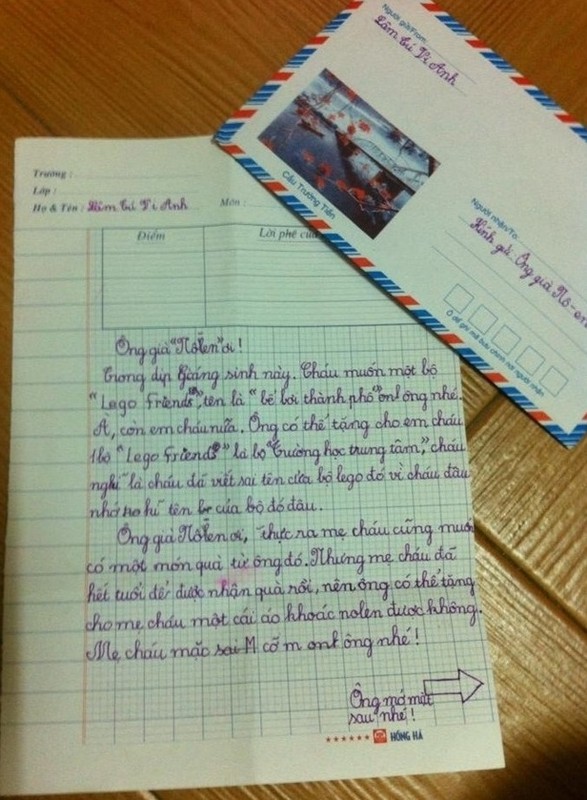 Người gửi/From:
Lâm Tú Vi Anh
Cầu Trường Tiền
Người nhận/To:
Kính gửi: Ông già Nô-en
Ô để ghi mã bưu chính nơi người nhận
Trường :
Lớp :
Họ & Tên : Lâm Tú Vi Anh Môn :
Điểm Lời phê của
Ông già "Nôen" ơi !
Trong dịp Giáng sinh này. Cháu muốn một bộ
"Lego Friends", tên là "bể bơi thành phố" ông nhé.
À, còn em cháu nữa. Ông có thể tặng cho em cháu
1 bộ "Lego Friends" là bộ "Trường học trung tâm", cháu
nghĩ là cháu đã viết sai tên của bộ lego đó vì cháu đâu
nhớ tên của bộ đó đâu.
Ông già Nôen ơi, thực ra mẹ cháu cũng muốn
có một món quà từ ông đó. Nhưng mẹ cháu đã
hết tuổi để được nhận quà rồi, nên ông có thể tặng
cho mẹ cháu một cái áo khoác nolen được không.
Mẹ cháu mặc sai M cỡ m ông nhé !
Ông mở mặt
sau nhé !
HỒNG HÀ